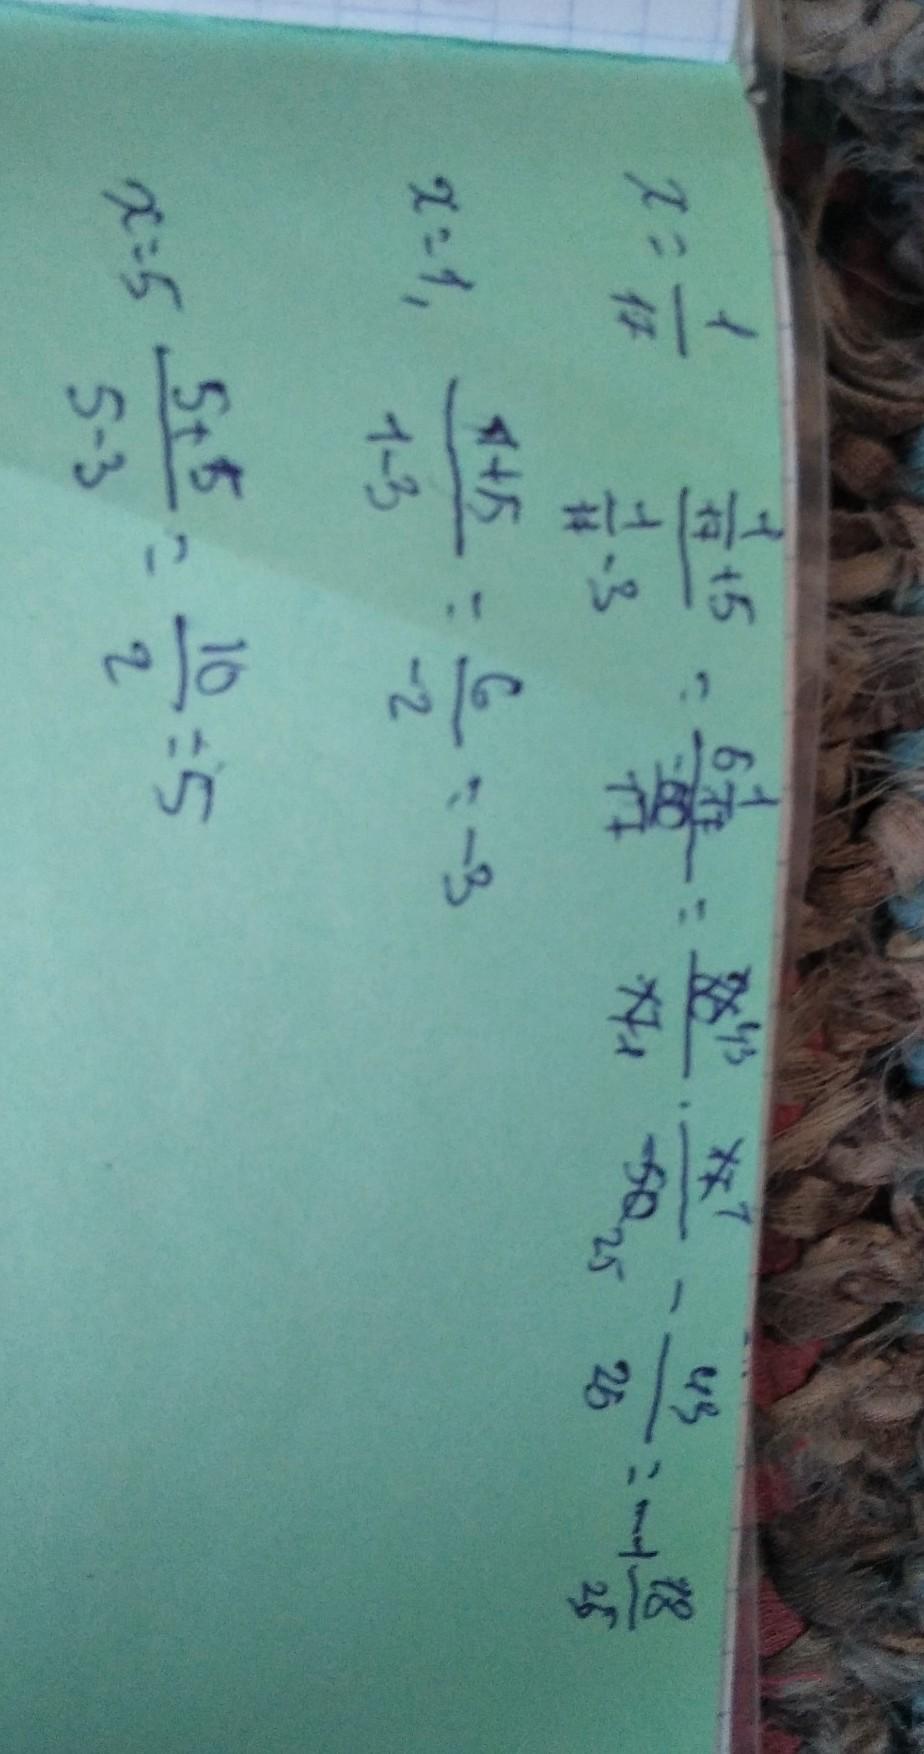 x = 1/17   (1/17 + 5)/(1/17 - 3) = (5 1/17)/(-50/17) = 86 43/17 1 · 17 1/-50 25 - 43/25 = -1 18/25
x = 1, (1+5)/(1-3) = 6/-2 = -3
x = 5 (5+5)/(5-3) = 10/2 = 5